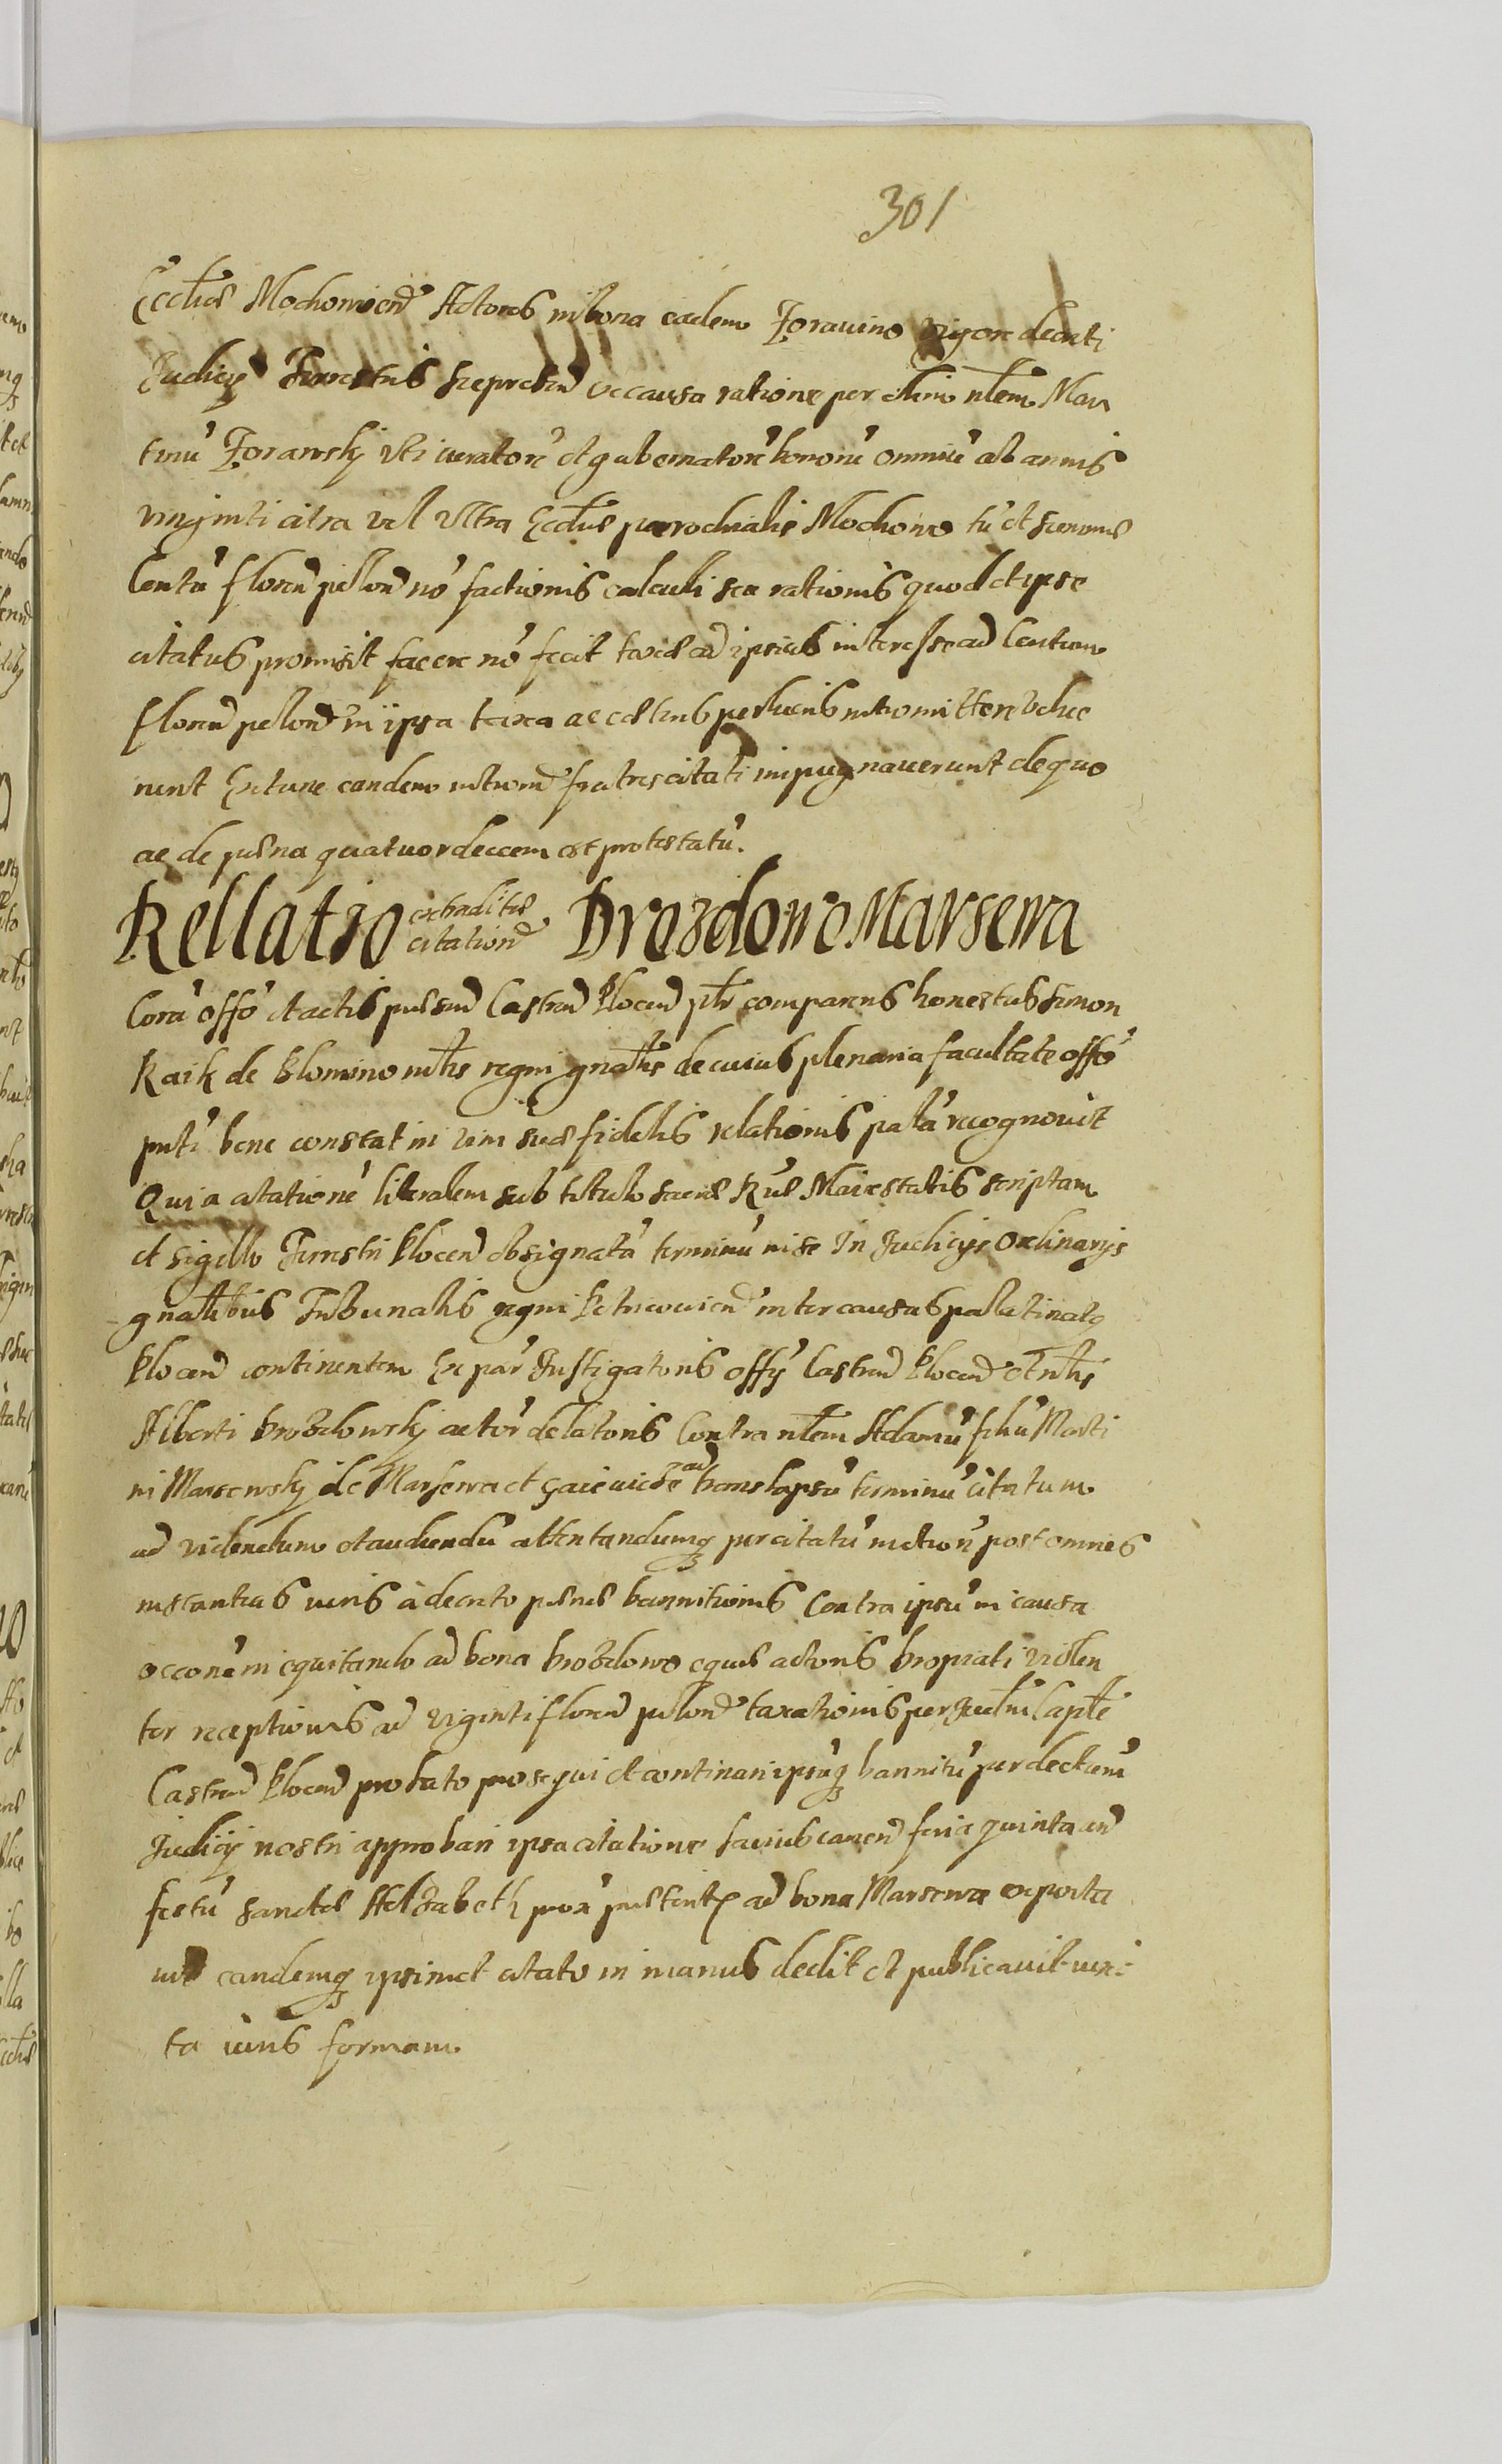 301
Ecclīae Mochowien Actores in bona eadem Zorawino vigore decreti
Judicy Terrestris Sieprcen ex causa ratione per olim nłem Mar
tinū Zorawskj uti curatorē et gubernatorē bonorū omniū ab annis
viginti citra vel ultra Ecclīae parrochialis Mochowo tū et summae
Centū floren polon nō factionis calculi seu rationis quod et ipse
citatus promisit facere nō fecit taxae ad ipsius interesse ad Centum
floren polon in ipsa taxa ac
runt Ex tunc eandem intromi fratres citati impugnauerunt de quo
ac de paena quatuordeccem est protestatū.
Rellatio extraditae citation Drozdowo Marsewa
Corā offō et actis praesen Castren Plocen płr comparens honestus Simon
Raik de Blomino mtis regni gnałis de cuius plenaria facultate offō
pnti bene constat in vim suae fidelis relationis palā recognouit
Quia citationē literalem sub titulo sacrae Rae Maiestatis scriptam
et sigillo Terrestri Plocen obsignatā terminū in se In Judicijs Ordinarijs
gnalibus Tribunalis regni Petricouien inter causas palatinatq
Plocen continentem Ex par Instigatoris offy Castren Plocen et nłis
Alberti Drozdowskj actor delatoris Contra nłem Adamū filiū Marti
ni Marsewskj de Marsewa et ad translapsū terminū citatum
ad videndum et audiendū attentandumq per citatū motion post omnes
instantias iuris à decreto paenae bannitionis Contra ipsū in causa
occonē in equitando ad bona Drozdowo equae actoris propriati violen
ter receptionis ad viginti floren polon taxationis per Capłe
Castren Plocen probato prosequi et continari ipsūq bannitū per decretum
Judicij nostri approbari ipsa citatione feria quinta an
festū sanctae Helzabeth prox praeterit ad bona Marsewa exporta
uit eandemq ipsimet citato in manus dedit et publicauit iux
ta iuris formam.